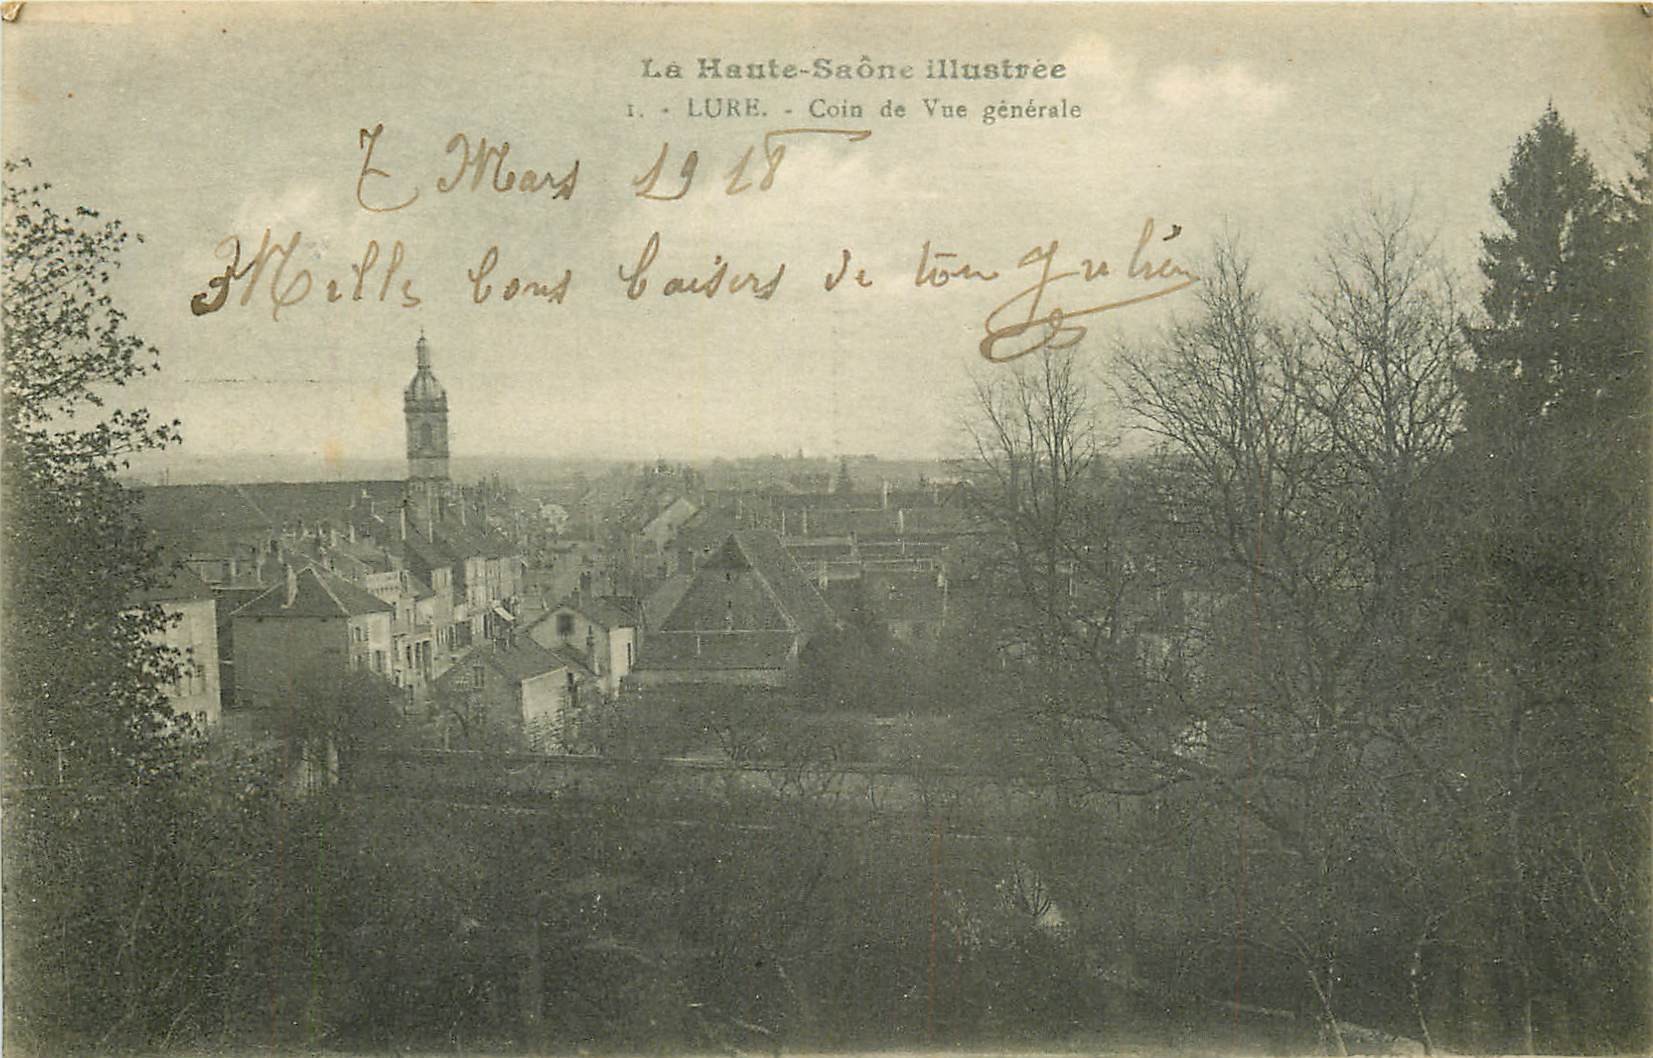 La Haute-Saône illustrée
1. - LURE. - Coin de Vue générale
7 Mars 1918
Mille bons baisers de ton Julien